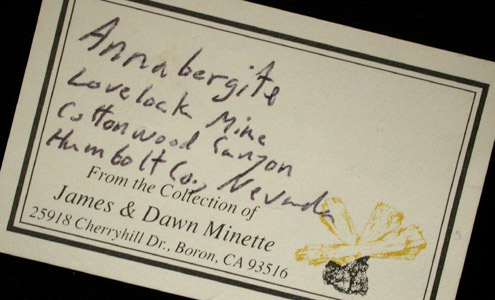 Annabergite
Lovelock Mine
Cottonwood Canyon
Humbolt Co., Nevada
From the Collection of
James & Dawn Minette
25918 Cherryhill Dr., Boron, CA 93516